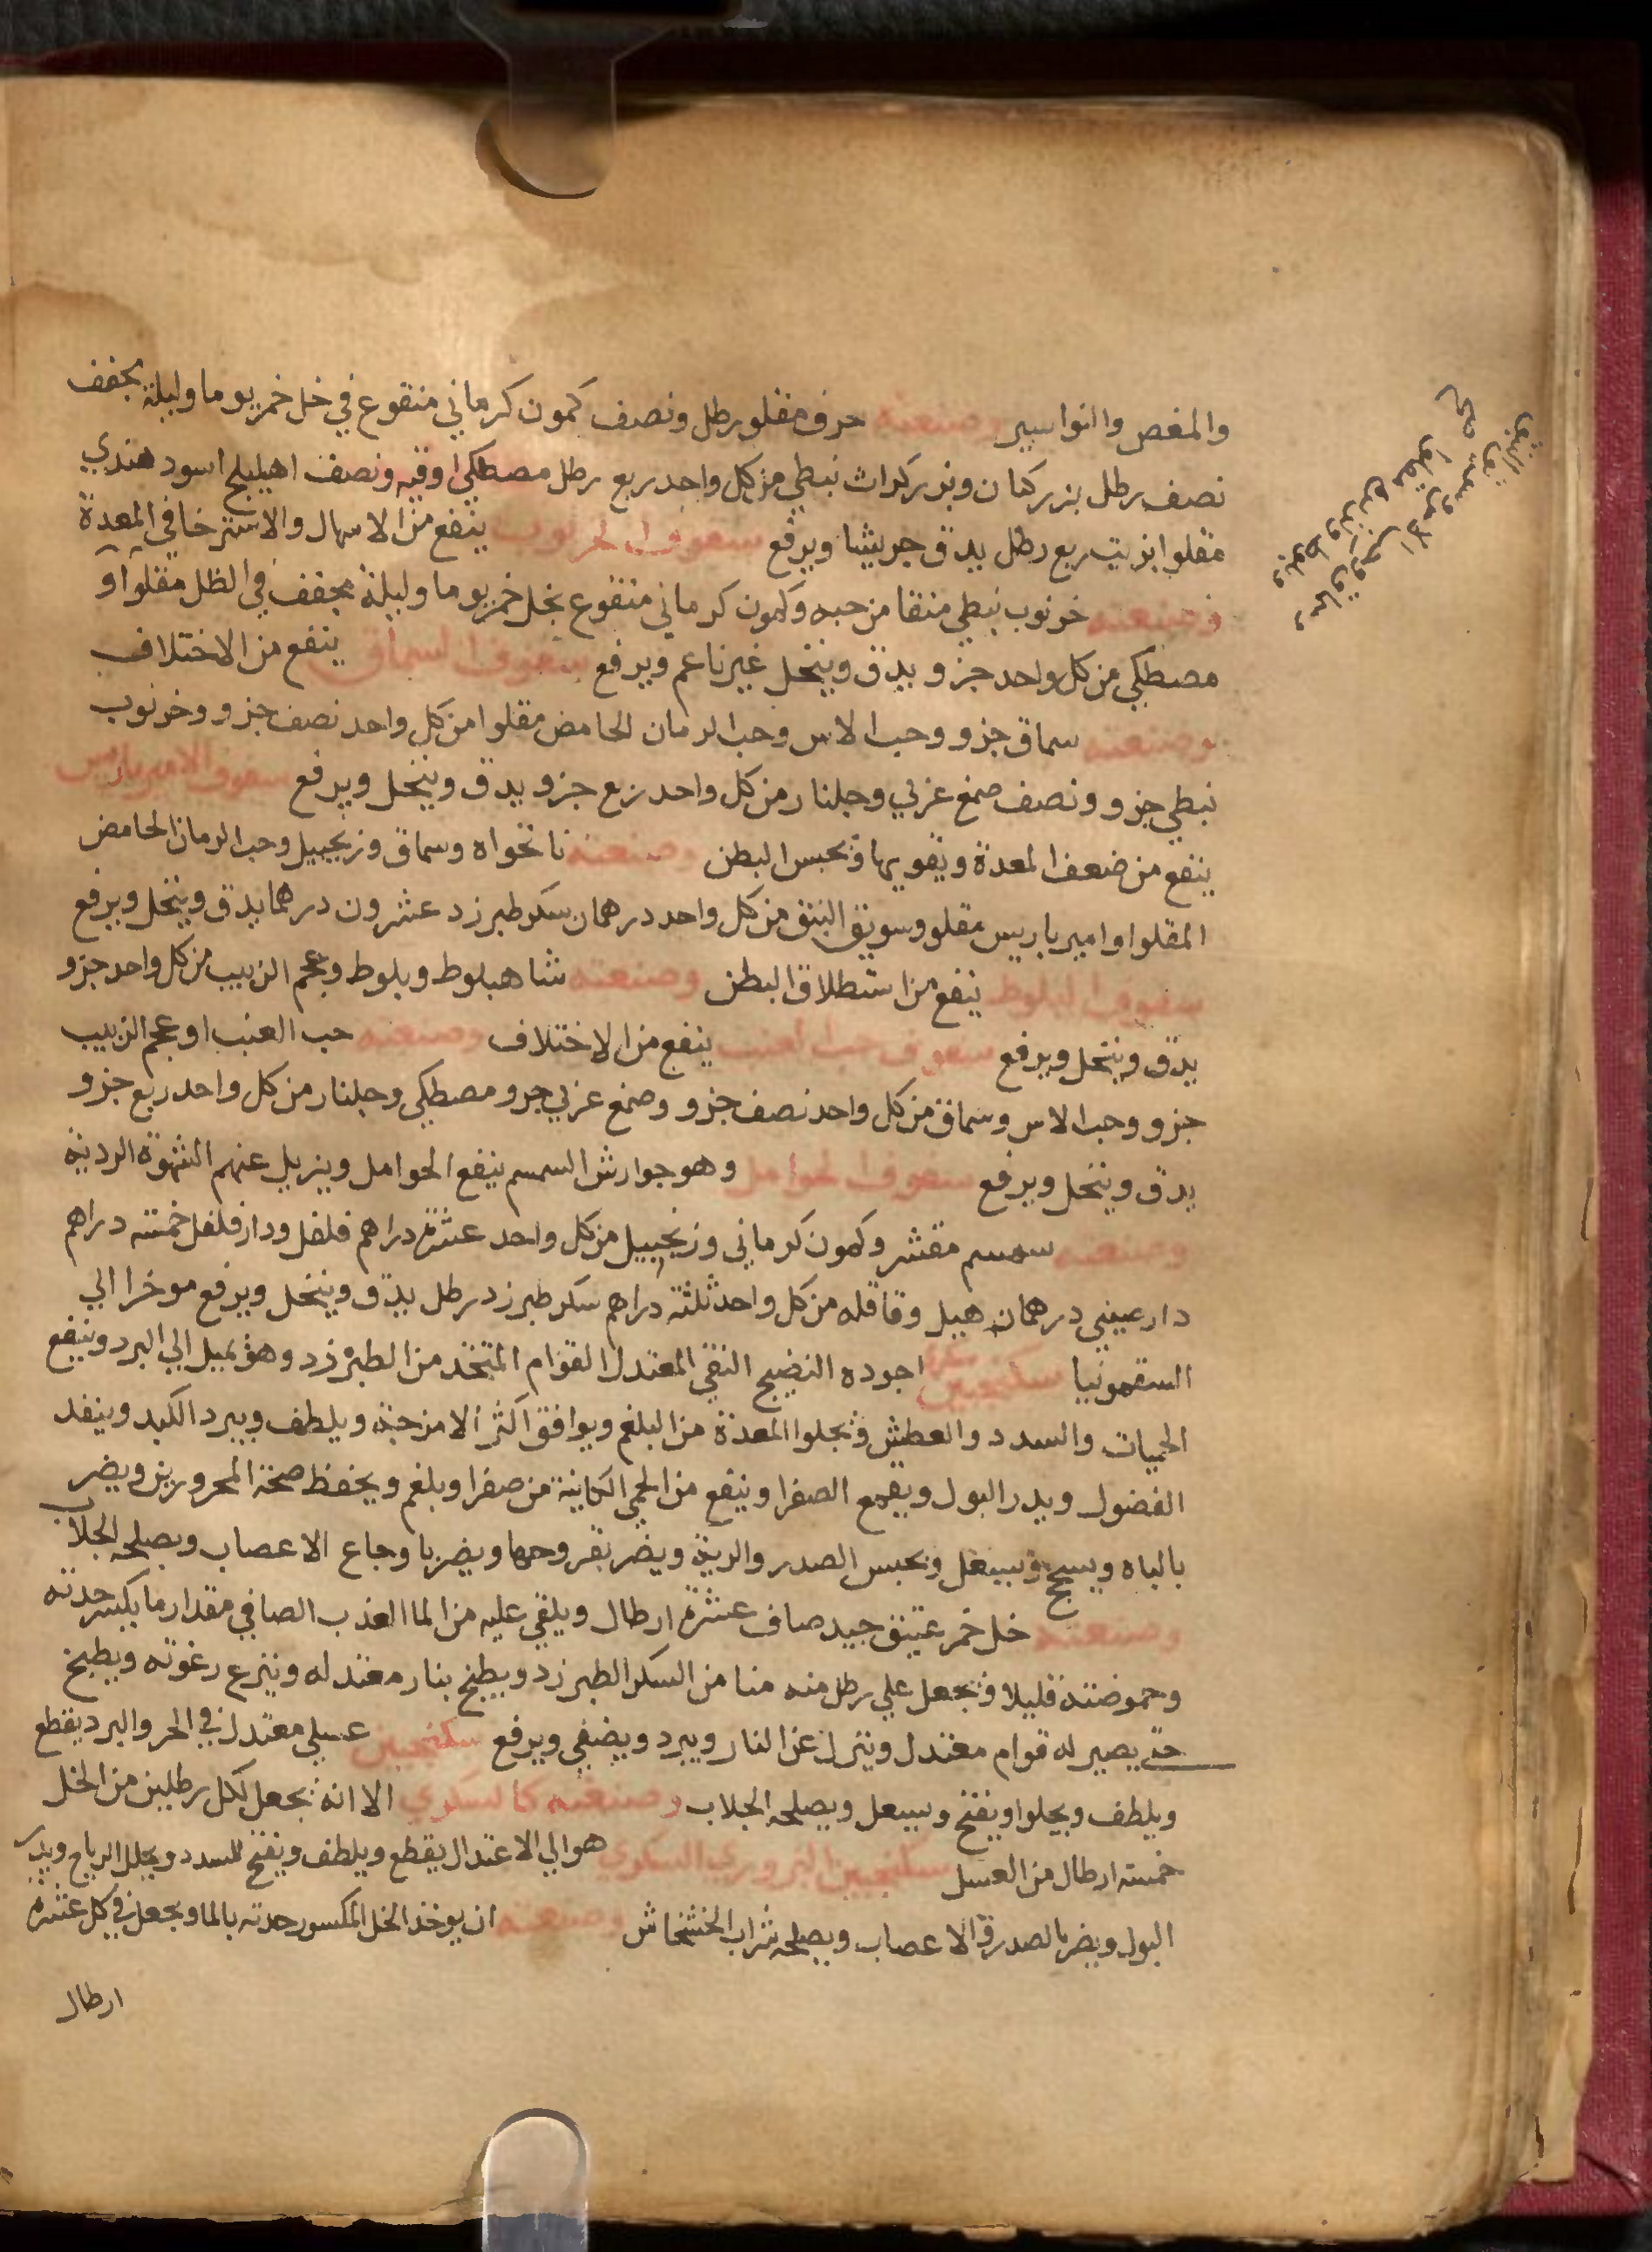 والمغص والنواسير وصنعته حرف مقلو رطل ونصف كمون كرماني منقوع في خل خمر يوما وليلة مجفف
نصف رطل بزر كتان وبزر كراث نبطي من كل واحد ربع رطل مصطكي اوقيه ونصف اهيليلج اسود هندي
مقلوا بزيت ربع رطل يدق جريشا ويرفع سفوف الخرنوب ينفع من الاسهال والاسترخا في المعدة
وصنعته خرنوب نبطي منقا من حبه وكمون كرماني منقوع بخل خمر يوما وليلة مجفف في الظل مقلوا و
مصطكي من كل واحد جزو يدق وينخل غير ناعم ويرفع سفوف السماق ينفع من الاختلاف
وصنعته سماق جزو وحب الاس وحب الرمان الحامض مقلوا من كل واحد نصف جزو وخرنوب
نبطي جزو ونصف صمغ عربي وجلنار من كل واحد ربع جزو يدق وينخل ويرفع سفوف الامير باريس
ينفع من ضعف المعدة ويقويها ويحبس البطن وصنعته نانخواه وسماق وزنجبيل وحب الرمان الحامض
المقلوا وامير باريس مقلو وسويق النبق من كل واحد درهمان سكر طبرزد عشرون درهما يدق وينخل ويرفع
سفوف البلوط ينفع من استطلاق البطن وصنعته شاهبلوط وبلوط وعجم الزبيب من كل واحد جزو
يدق وينخل ويرفع سفوف حب العنب ينفع من الاختلاف وصنعته حب العنب او عجم الزبيب
جزو وحب الاس وسماق من كل واحد نصف جزو وصمغ عربي جرو مصطكي وجلنار من كل واحد ربع جزو
يدق وينخل ويرفع سفوف الحوامل وهو جوارش السمسم ينفع الحوامل ويزيل عنهم الشهوة الرديه
وصنعته سمسم مقشر وكمون كرماني وزنجبيل من كل واحد عشرة دراهم فلفل ودار فلفل خمسه دراهم
دارصيني درهمان هيل وقاقله من كل واحد ثلثة دراهم سكر طبرزد رطل يدق وينخل ويرفع موخرا الي
السقمونيا سكنجبين سكري اجوده النضيج النقي المعتدل القوام المتخد من الطبرزد وهو يميل الي البرد وينفع
الحميات والسدد والعطش ويجلوا المعدة من البلغم ويوافق اكثر الامزجة ويلطف ويبرد الكبد وينفد
الفضول ويدر البول ويقمع الصفرا وينفع من الحمي الكاينة من صفرا وبلغم ويحفظ صحة المحرورين ويضر
بالباه ويسحج ويسعل ويحبس الصدر والرية ويضر بقروحها ويضر باوجاع الاعصاب ويصلحه الجلاب
وصنعته خل خمر عتيق جيد صاف عشرة ارطال ويلقي عليه من الما العذب الصافي مقدار ما يكسر حدته
وحموضته قليلا ويجعل علي رطل منه منا من السكر الطبرزد ويطبخ بنار معتدله وينزع رغوته ويطبخ
حتي يصير له قوام معتدل وينزل عن النار ويبرد ويصفي ويرفع سكنجبين عسلي معتدل في الحر والبرد يقطع
ويلطف ويجلوا ويفتح ويسعل ويصلحه الجلاب وصنعته كالسكري الا انه يجعل لكل رطلين من الخل
خمسة ارطال من العسل سكنجبين البزوري السكري هو الي الاعتدال يقطع ويلطف ويفتح للسدد ويحلل الرياح ويدر
البول ويضر بالصدر والاعصاب ويصلحه شراب الخشخاش وصنعته ان يوخذ الخل المكسور حدته بالما ويجعل في كل عشره
ارطال